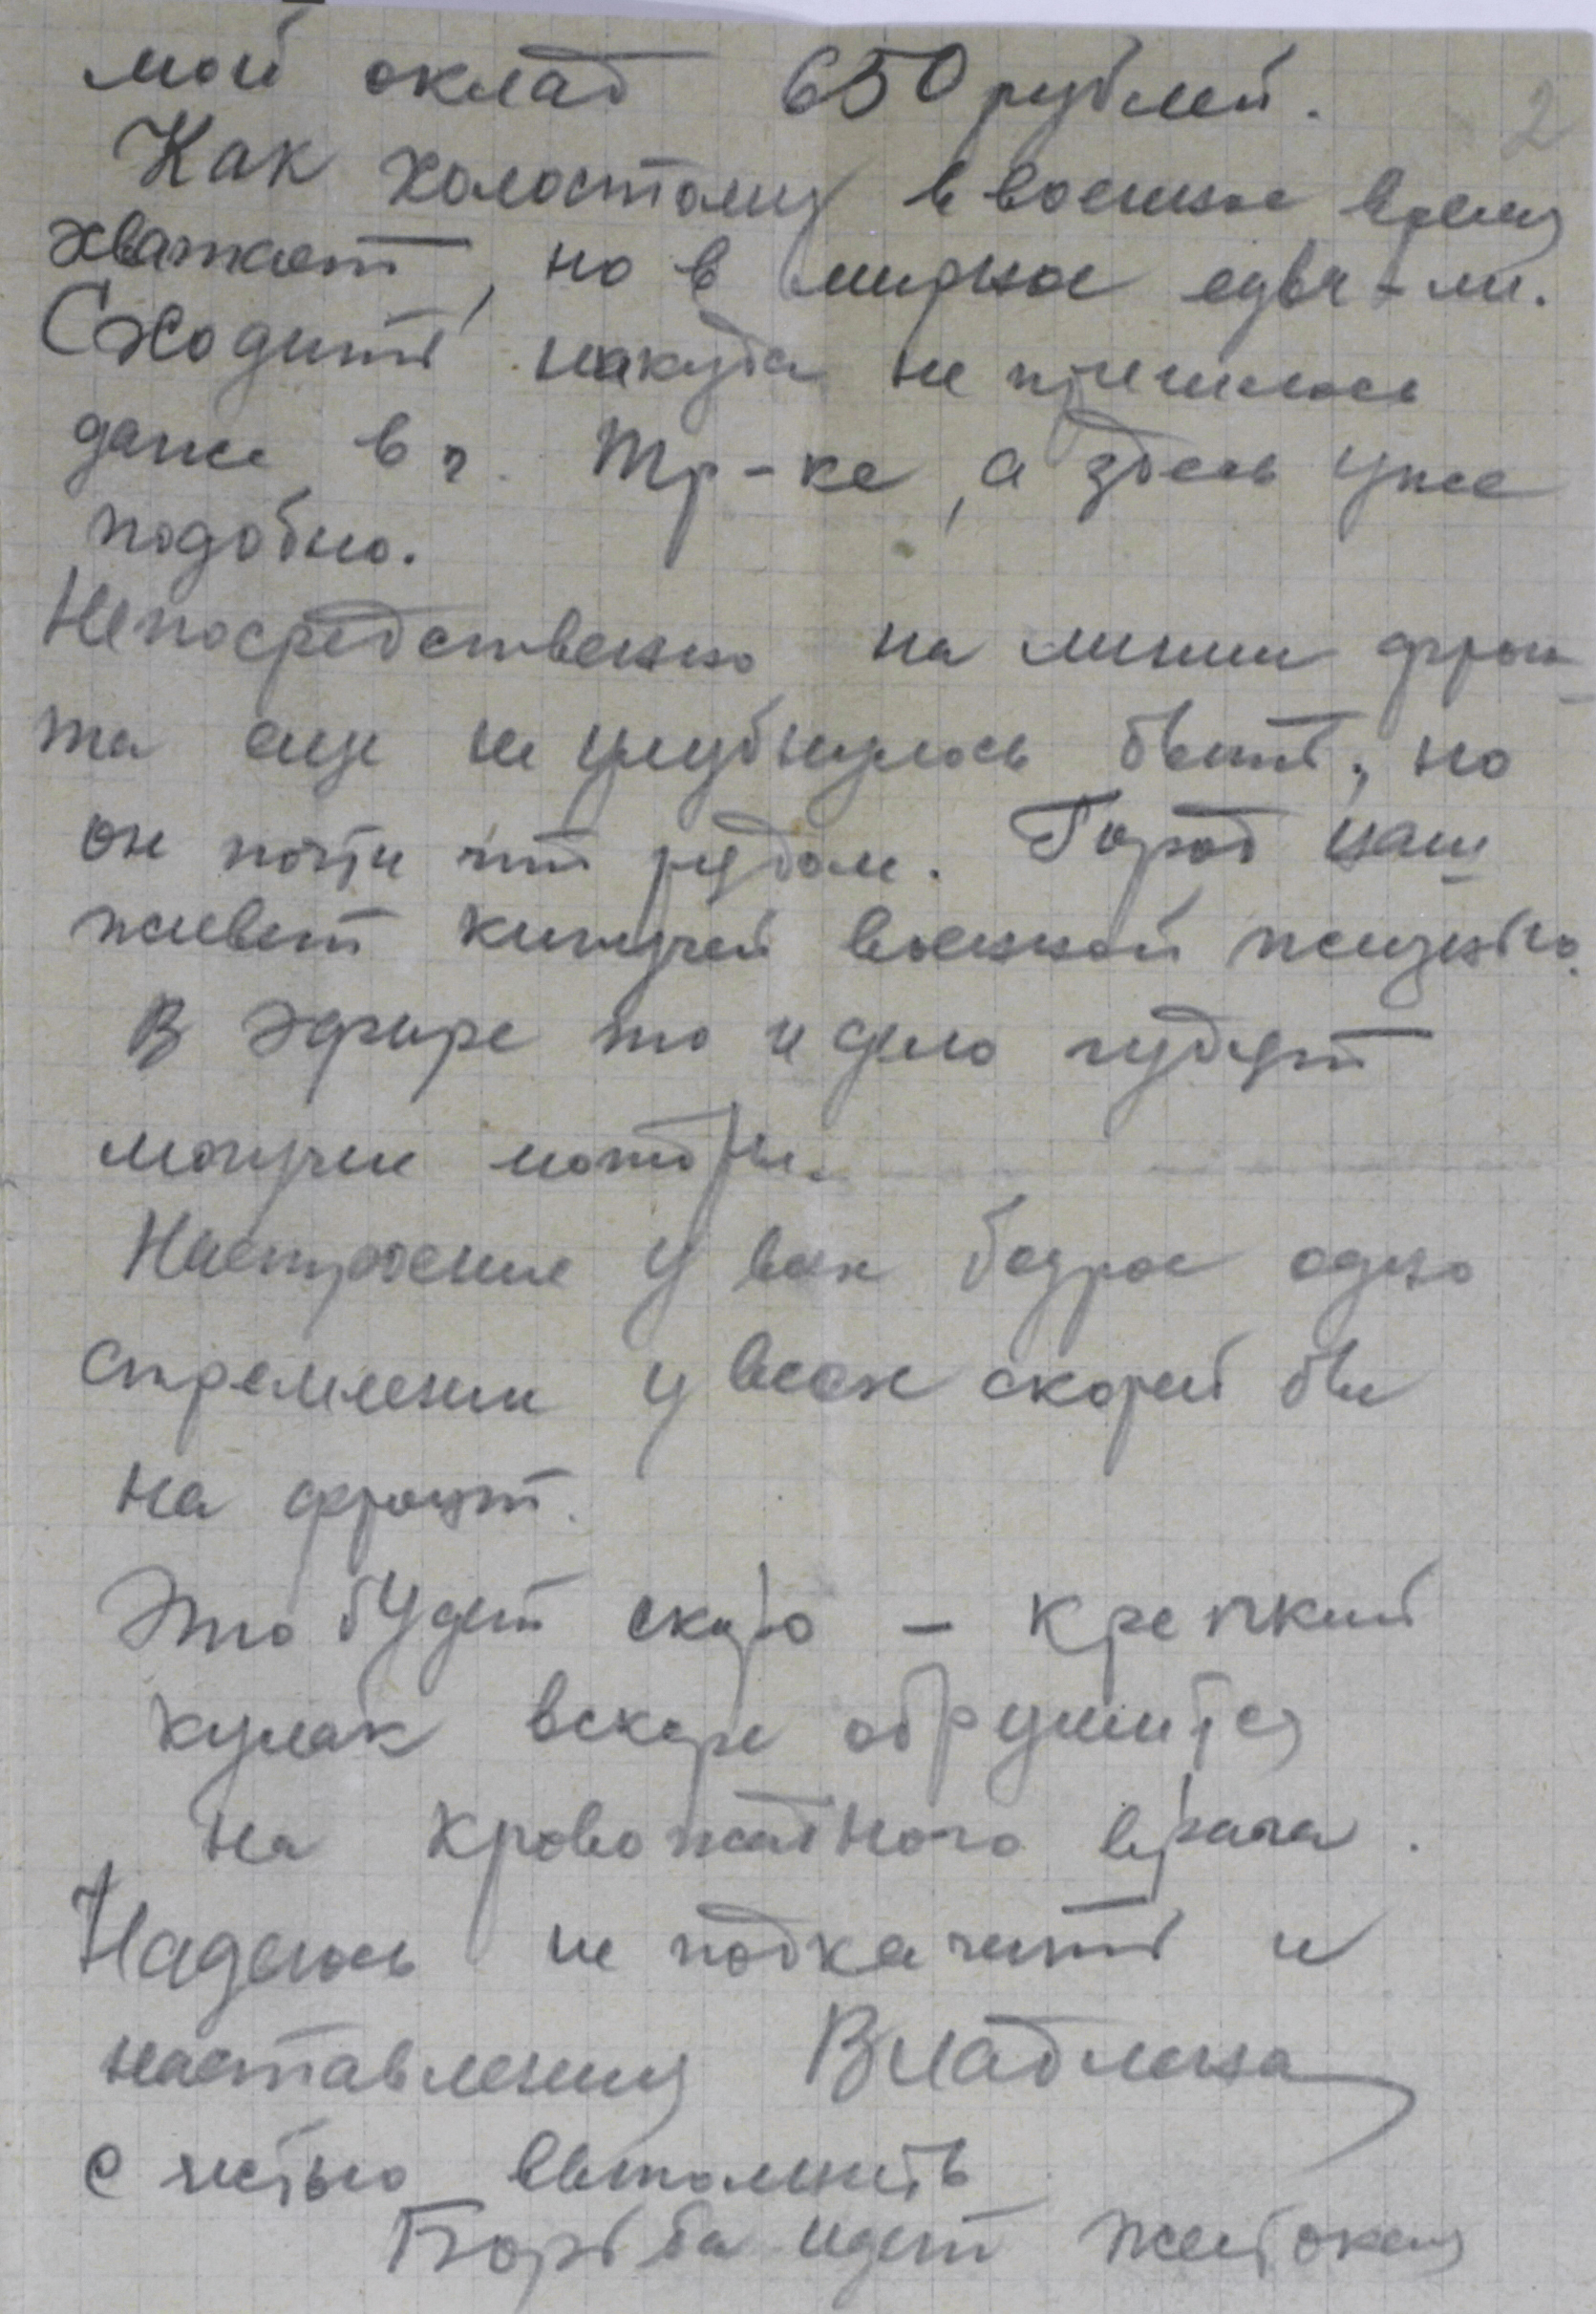 мой оклад 650 рублей.
2
Как холостому в военное время
хватает, но в мирное едва-ли.
Сходить никуда не пришлось
даже в г. Тр-ке, а здесь уже
подобно.
Непосредственно на линии фрон-
та еще не улыбнулось быть, но
он почти что рядом. Город наш
живет кипучей военной жизнью.
В эфире то и дело гудят
могучие моторы.
Настроение у всех бодрое одно
стремление у всех скорей бы
на фронт.
Это будет скоро - крепкий
кулак вскоре обрушится
на кровожадного врага.
Надеюсь не подкачить и
наставления Владлена
с честью выполнить
Борьба идет жестокая